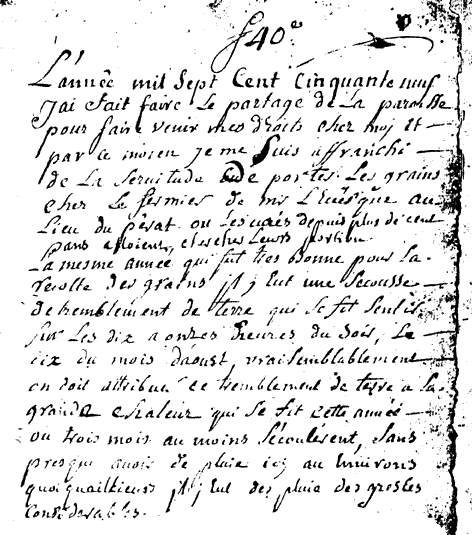 f 40e
L'année mil sept Cent Cinquante neuf
J'ai fait faire le partage de La paroisse
pour faire venir mes droits chez moj et
par ce moien je me suis affranchi
de La servitude de porter Les grains
chez Le fermier de mr L'Evêsque au
Lieu du pésat ou Les curés depuis plus de cent
pans alloient chercher Leurs portion
La mesme année qui fut tres bonne pour La
recolte des grains jl j Eut une secousse
de tremblement de terre qui se fit sentir
sur Les dix a onzes heures du soir, Le
dix du mois daoust, vraisemblablement
on doit attribuer ce tremblement de terre a La
grande chaleur qui se fit cette année
ou trois mois au moins s'écoulérent, sans
presqu avoir de pluie icj au Environs
quoiquailtieurs jl j Eut des pluie des grostes
Considerables.